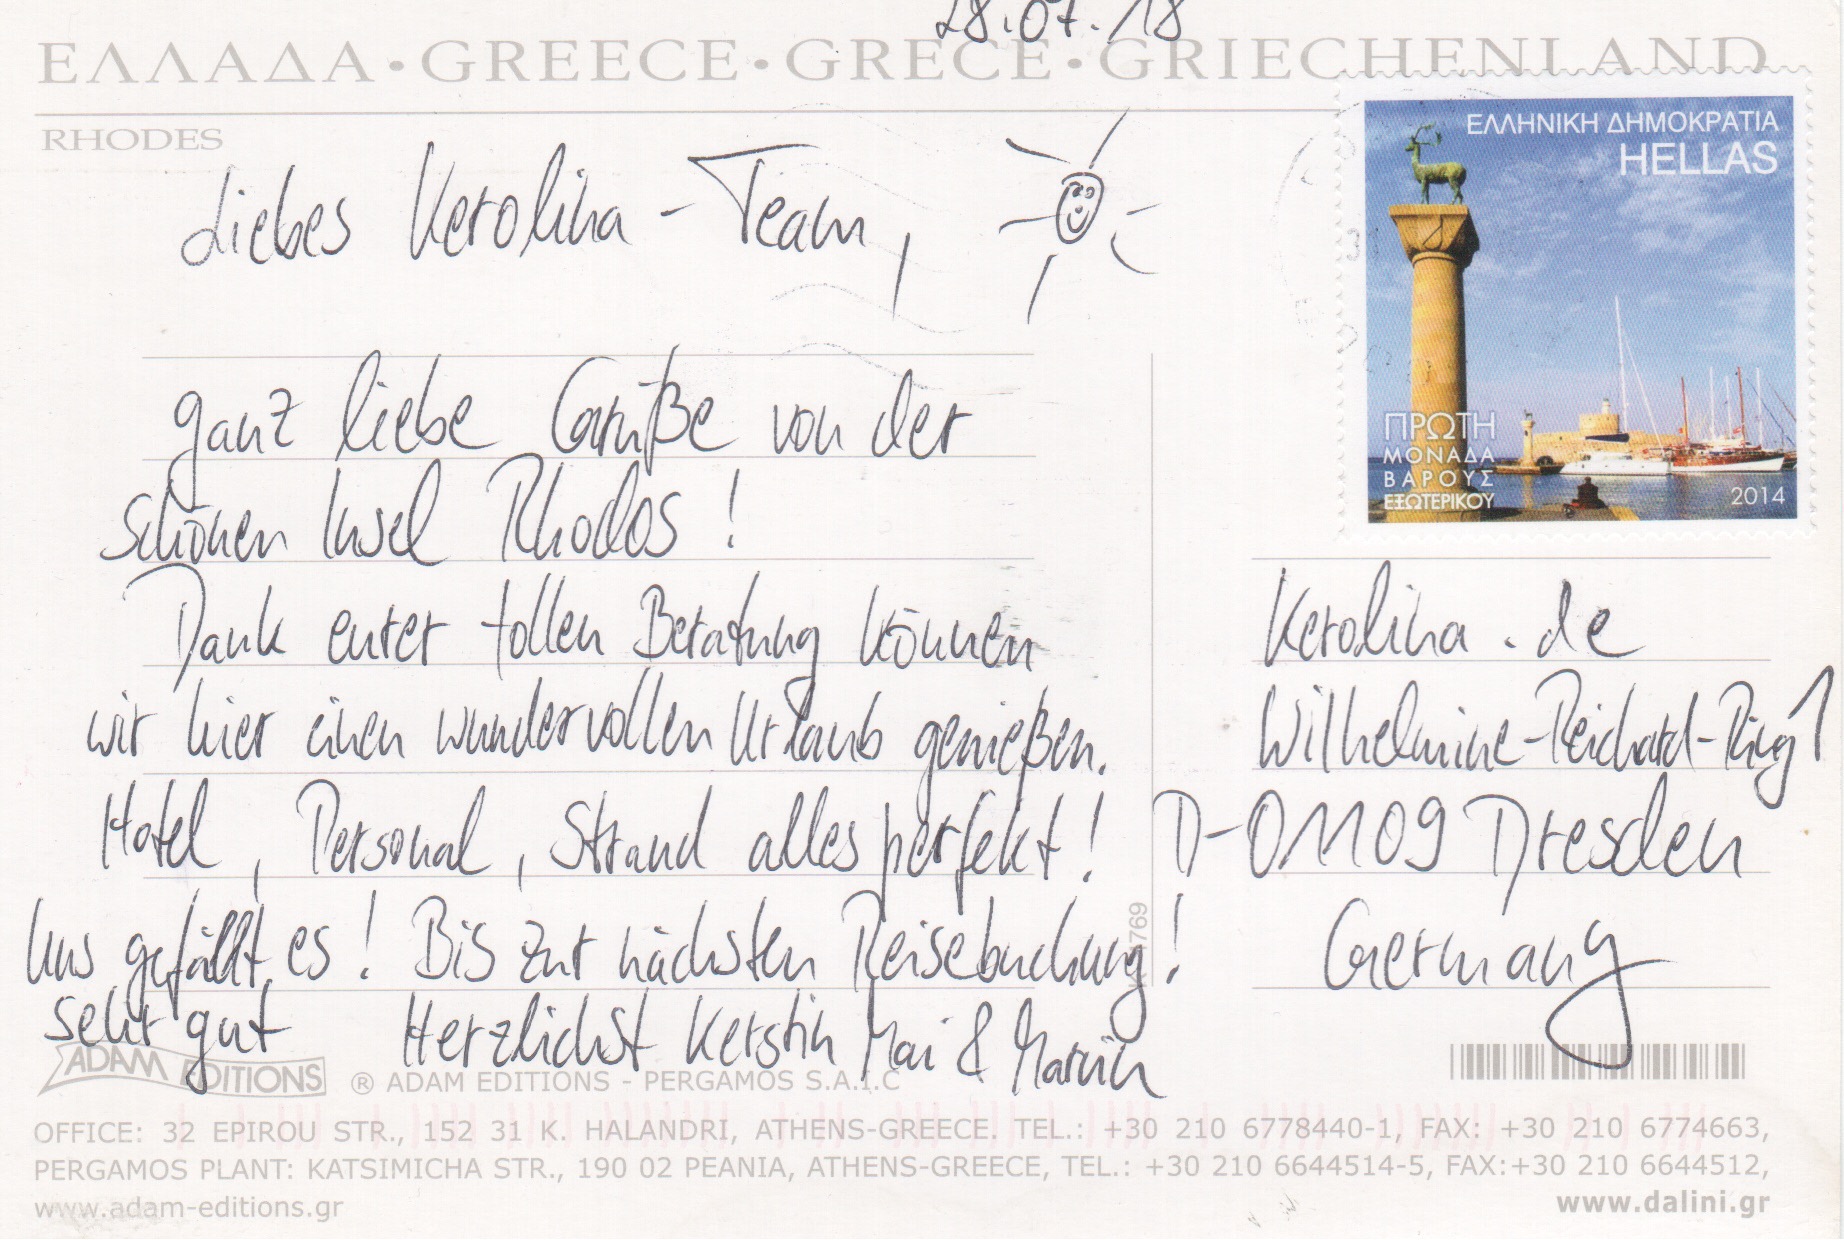 28.07.18
ΕΛΛΑΔΑ • GREECE • GRECE • GRIECHENLAND
RHODES
Liebes Kerolina-Team,
ganz liebe Grüße von der
schönen Insel Rhodos!
Dank eurer tollen Beratung können
wir hier einen wundervollen Urlaub genießen.
Hotel, Personal, Strand alles perfekt!
Uns gefällt es! Bis zur nächsten Reisebuchung!
sehr gut Herzlichst Kerstin Mai & Marvin
ΕΛΛΗΝΙΚΗ ΔΗΜΟΚΡΑΤΙΑ
HELLAS
ΠΡΩΤΗ
ΜΟΝΑΔΑ
ΒΑΡΟΥΣ
ΕΞΩΤΕΡΙΚΟΥ
2014
Kerolina.de
Wilhelmine-Reichard-Ring 1
D-01109 Dresden
Germany
ADAM EDITIONS
® ADAM EDITIONS - PERGAMOS S.A.I.C
OFFICE: 32 EPIROU STR., 152 31 K. HALANDRI, ATHENS-GREECE. TEL.: +30 210 6778440-1, FAX: +30 210 6774663,
PERGAMOS PLANT: KATSIMICHA STR., 190 02 PEANIA, ATHENS-GREECE, TEL.: +30 210 6644514-5, FAX:+30 210 6644512,
www.adam-editions.gr
www.dalini.gr